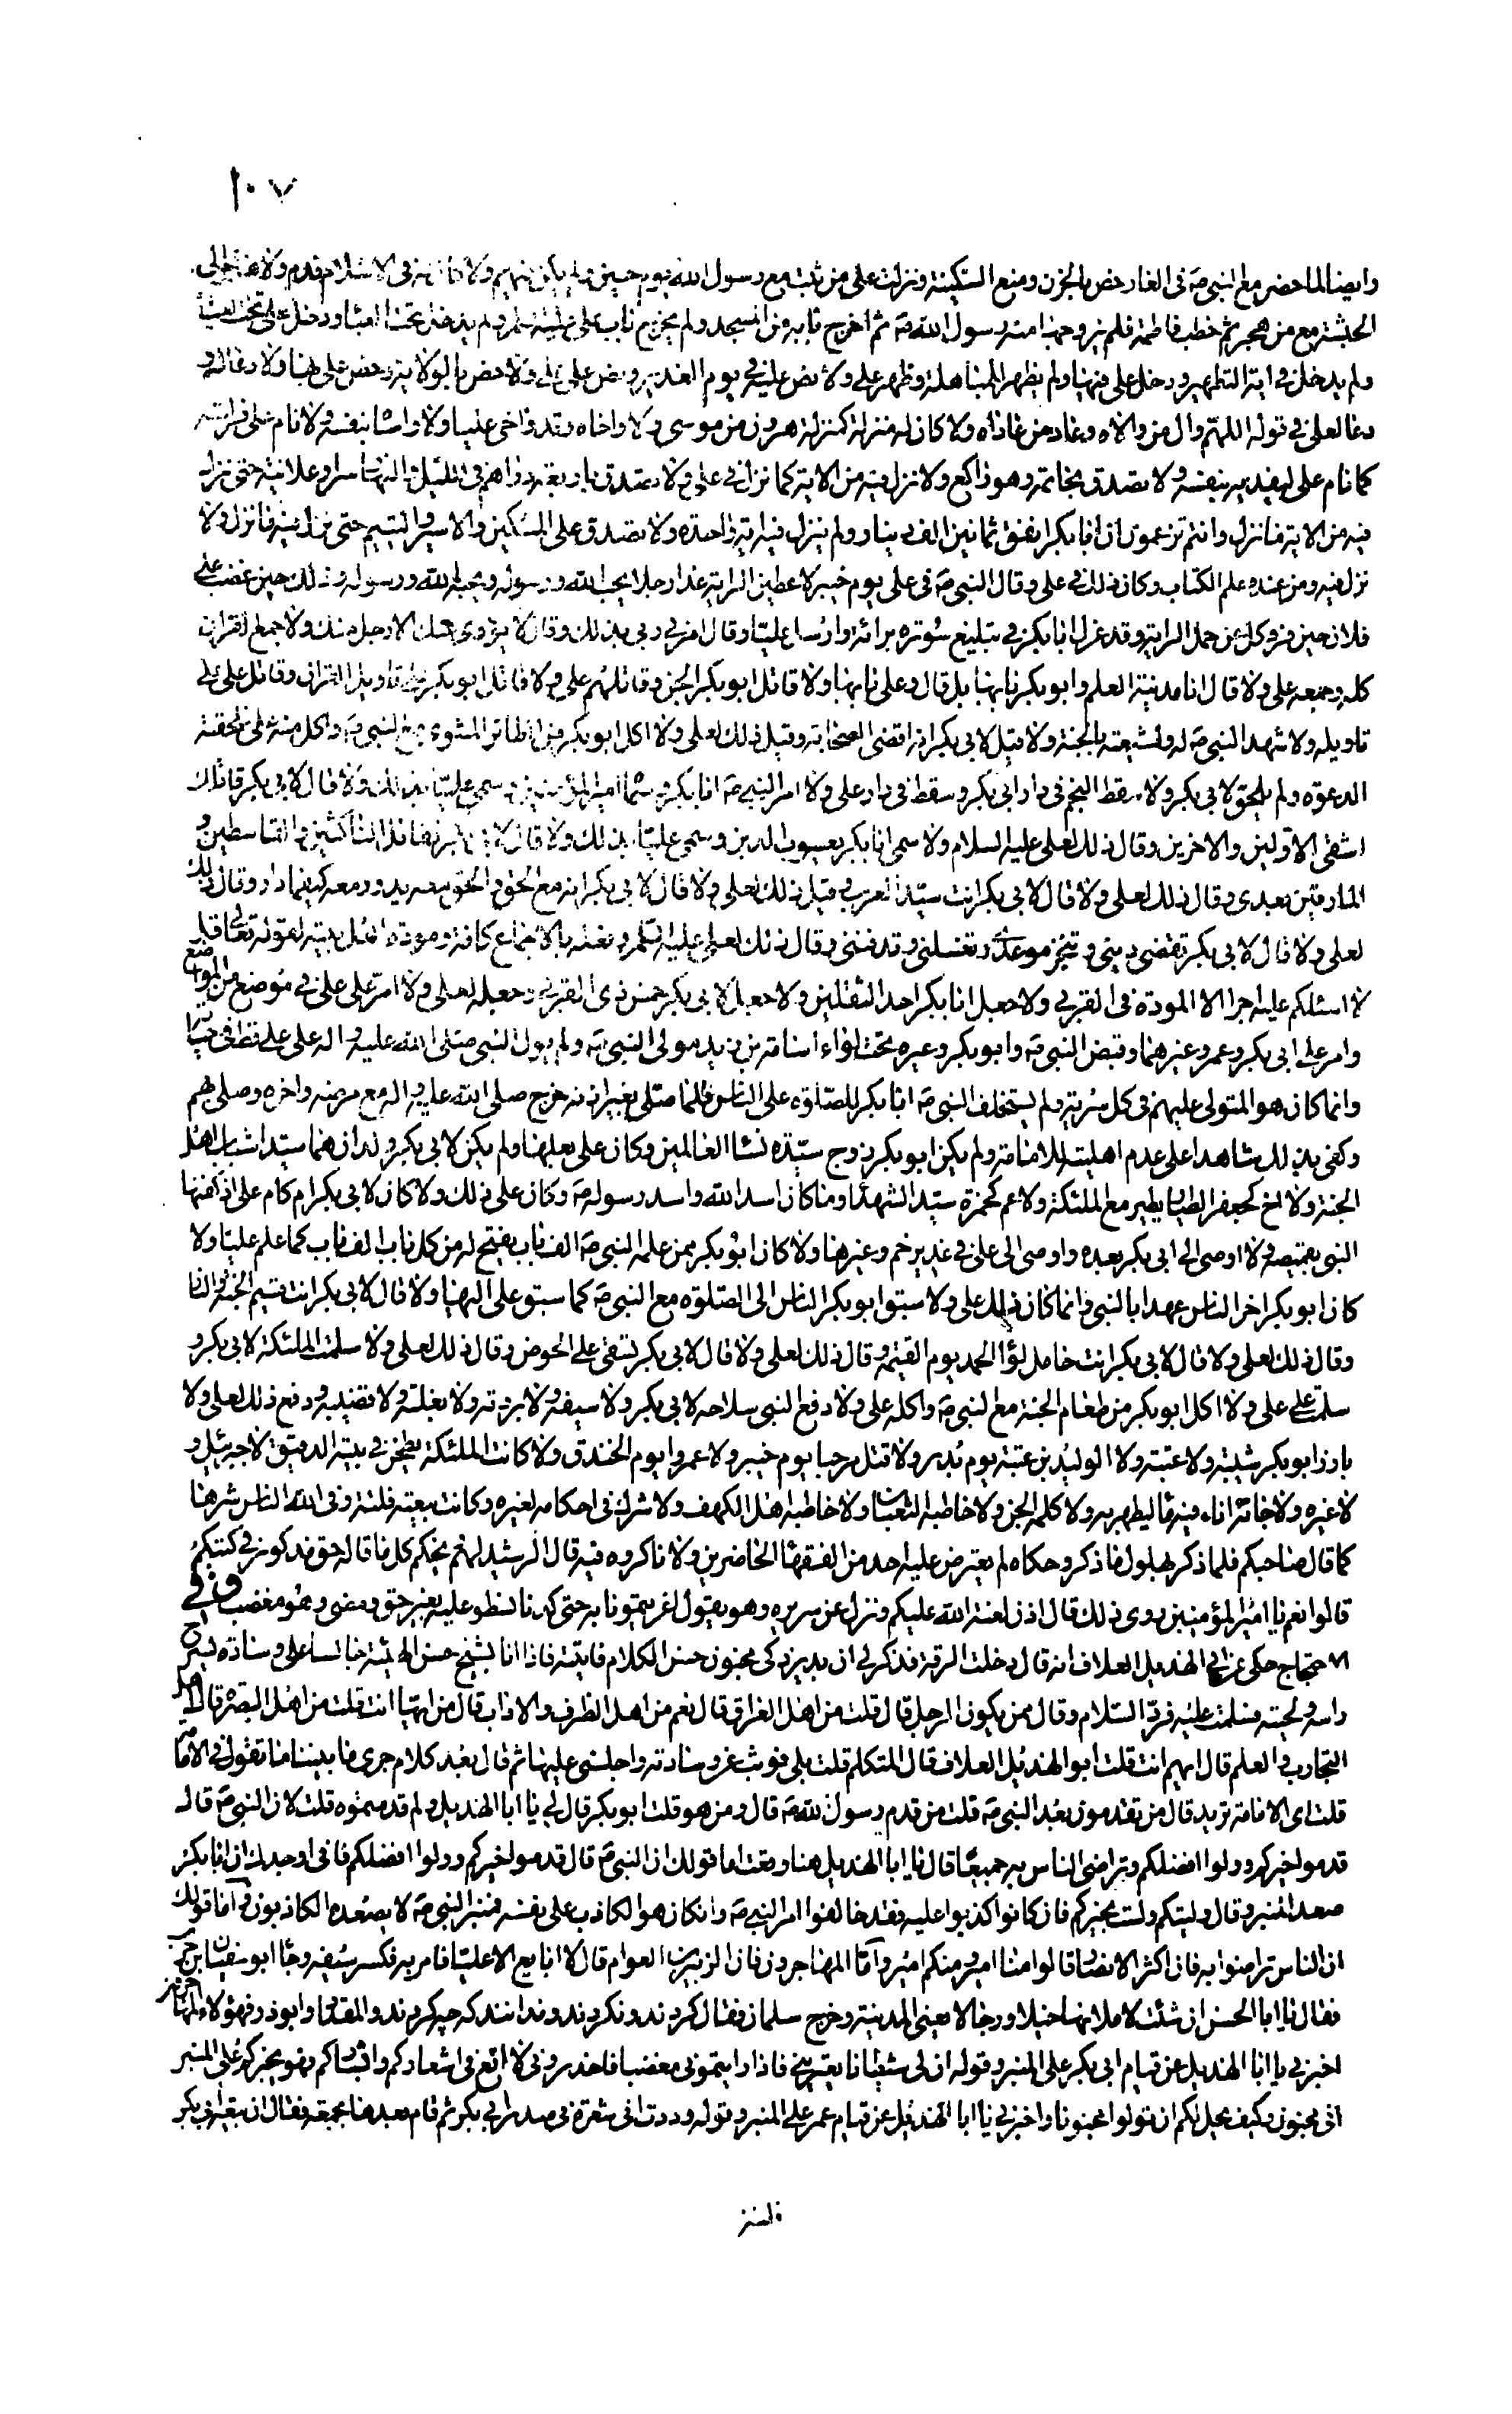 ١٠٧
وايضا لما حضر مع النبي صه في الغار خص بالحزن ومنع السكينة ونزلت على من ثبت مع رسول الله يوم حنين ولم يكن منهم ولا كان له في الاسلام قدم ولا هاجر الى
الحبشة مع من هجر ثم خطب فاطمة فلم يزوجها منه رسول الله صه ثم اخرج بابه من المسجد ولم يخرج باب علي عليه السلم ولم يدخل تحت العبا ودخل علي تحت العبا
ولم يدخل في اية التطهير ودخل علي فيها ولم يظهر للمباهلة وظهر علي ولا نص عليه في يوم الغدير ونص على علي ولا خص بالولاية وخص علي بها ولا دعا له و
دعا لعلي في قوله اللهم وال من والاه وعاد من عاداه ولا كان له منزلة كمنزلة هرون من موسى ولا واخاه وقد واخى عليا ولا واساه بنفسه ولا نام على فراشه
كما نام علي ليفديه بنفسه ولا تصدق بخاتمه وهو راكع ولا نزل فيه من الاية كما نزل في علي ولا تصدق باربعة دراهم في الليل والنهار سرا وعلانية حتى نزل
فيه من الاية ما نزل وانتم تزعمون ان ابا بكر انفق ثمانين الف دينار ولم ينزل فيه اية واحدة ولا تصدق على المسكين والاسير واليتيم حتى نزل فيه ما نزل ولا
نزل فيه ومن عنده علم الكتاب وكان ذلك في علي وقال النبي صه في علي يوم خيبر لاعطين الراية غدا رجلا يحب الله ورسوله ويحبه الله ورسوله وذلك حين غضب على
فلان حين فر وكل عن حمل الراية وقد عزل ابا بكر في تبليغ سورة برائة وارسل عليا وقال امرني ربي بذلك وقال لا يؤدي عنك الا رجل منك ولا جمع القران
كله وجمعه علي ولا قال انا مدينة العلم وابو بكر بابها بل قال وعلي بابها ولا قاتل ابو بكر الجن وقاتلهم علي ولا قاتل ابو بكر على تاويل القران وقاتل علي على
تاويله ولا شهد النبي صه له ولشيعته بالجنة ولا قيل لابي بكر انه اقضى الصحابة وقيل ذلك لعلي ولا اكل ابو بكر من الطائر المشوي مع النبي صه واكل منه علي فلحقته
الدعوة ولم يلحق لابي بكر ولا سقط النجم في دار ابي بكر وسقط في دار علي ولا امر النبي صه ابا بكر وسماه امير المؤمنين وسمى عليا بذلك ولا قال لابي بكر قاتلك
اشقى الاولين والاخرين وقال ذلك لعلي عليه السلام ولا سمى ابا بكر يعسوب الدين وسمى عليا بذلك ولا قال لابي بكر تقاتل الناكثين والقاسطين و
المارقين بعدي وقال ذلك لعلي ولا قال لابي بكر انت سيد العرب وقيل ذلك لعلي ولا قال لابي بكر انه مع الحق والحق معه يدور معه كيفما دار وقال ذلك
لعلي ولا قال لابي بكر تقضي ديني وتنجز موعدي وتغسلني وتدفنني وقال ذلك لعلي عليه السلم وبغضه بالاجماع كافة ومودة اهل بيته لقوله تعالى قل
لا اسئلكم عليه اجرا الا المودة في القربى ولا جعل ابا بكر احد الثقلين ولا جعل لابي بكر خمس ذي القربى وجعله لعلي ولا امر على علي في موضع من المواضع
وامر على ابي بكر وعمر وغيرهما وقبض النبي صه وابو بكر وغيره تحت لواء اسامة بن زيد مولى النبي صه ولم يول النبي صلى الله عليه واله على علي قط في حياته
وانما كان هو المتولي عليهم في كل سرية ولم يستخلف النبي صه ابا بكر للصلوة على الناس فلما صلى بغير اذنه خرج صلى الله عليه واله مع مرضه واخره وصلى بهم
وكفى بذلك شاهدا على عدم اهليته للامامة ولم يكن ابو بكر زوج سيدة نساء العالمين وكان علي بعلها ولم يكن لابي بكر ولدان هما سيدا شباب اهل
الجنة ولا اخ كجعفر الطيار يطير مع الملئكة ولا عم كحمزة سيد الشهداء وما كان اسد الله واسد رسوله صه وكان علي ذلك ولا كان لابي بكر ام كام علي اذ كفنها
النبي بقميصه ولا اوصى الى ابي بكر بعده واوصى الى علي في غدير خم وغيرها ولا كان ابو بكر ممن علمه النبي صه الف باب يفتح له من كل باب الف باب كما علم عليا ولا
كان ابو بكر اخر الناس عهدا بالنبي وانما كان ذلك علي ولا سبق ابو بكر الناس الى الصلوة مع النبي صه كما سبق علي اليها ولا قال لابي بكر انت قسيم الجنة والنار
وقال ذلك لعلي ولا قال لابي بكر انت حامل لواء الحمد يوم القيمة وقال ذلك لعلي ولا قال لابي بكر تسقي على الحوض وقال ذلك لعلي ولا سلمت الملئكة لابي بكر و
سلمت على علي ولا اكل ابو بكر من طعام الجنة مع النبي صه واكله علي ولا دفع النبي سلاحه لابي بكر ولا سيفه ولا بردته ولا بغلته ولا قضيبه ودفع ذلك لعلي ولا
بارز ابو بكر شيبة ولا عتبة ولا الوليد بن عتبة يوم بدر ولا قتل مرحبا يوم خيبر ولا عمروا يوم الخندق ولا كانت الملئكة يطحن في بيته الدقيق لا جبرئيل و
لا غيره ولا جائه اناء فيه ماء ليطهر به ولا كلمه الجن ولا خاطبه الثعبان ولا خاطبه اهل الكهف ولا شرك في احكامه لغيره وكانت بيعته فلتة وقى الله الناس شرها
كما قال صاحبكم فلما ذكر بهلول ما ذكر وحكاه لم يعترض عليه احد من الفقهاء الحاضرين ولا ناكروه فيه قال الرشيد لهم يحكم كل ما قاله حق مذكور في كتبكم
قالوا نعم يا امير المؤمنين روي ذلك قال اذن لعنة الله عليكم ونزل عن سريره وهو يقول غريتمونا به حتى كدنا نسطو عليه بغير حق ومضى وهو مغضب وفي
الاحتجاج حكي عن ابي الهذيل العلاف انه قال دخلت الرقة فذكر لي ان بدير زكى مجنون حسن الكلام فاتيته فاذا انا بشيخ حسن الهيئة جالسا على وسادة يسرح
راسه ولحيته فسلمت عليه فرد السلام وقال ممن يكون الرجل قال قلت من اهل العراق قال نعم من اهل الظرف والاداب قال من ايها انت قلت من اهل البصرة قال اهل
التجارب والعلم قال ايهم انت قلت ابو الهذيل العلاف قال المتكلم قلت بلى فوثب عن وسادته واجلسني عليها ثم قال بعد كلام جرى ما بيننا ما تقول في الامامة
قلت اي الامامة تريد قال من تقدمون بعد النبي صه قلت من قدم رسول الله صه قال ومن هو قلت ابو بكر قال لي يا ابا الهذيل ولم قدمتموه قلت لان النبي صه قال
قدموا خيركم وولوا افضلكم وتراضى الناس به جميعا قال يا ابا الهذيل هنا وقعت اما قولك ان النبي صه قال قدموا خيركم وولوا افضلكم فاني اوجدك ان ابا بكر
صعد المنبر وقال وليتكم ولست بخيركم فان كانوا كذبوا عليه فقد خالفوا امر النبي صه وان كان هو الكاذب على نفسه فمنبر النبي صه لا يصعده الكاذبون واما قولك
ان الناس تراضوا به فان اكثر الانصار قالوا منا امير ومنكم امير واما المهاجرون فان الزبير بن العوام قال لا ابايع الا عليا فامر به فكسر سيفه وجاء ابو سفيان بن حرب
فقال يا ابا الحسن ان شئت لاملانها خيلا ورجالا يعني المدينة وخرج سلمان فقال كرديد ونكرديد وندانند كه چه كرديد والمقداد وابو ذر فهؤلاء المهاجرين
اخبرني يا ابا الهذيل عن قيام ابي بكر على المنبر وقوله ان لي شيطانا يعتريني فاذا رايتموني مغضبا فاحذروني لا اقع في اشعاركم وابشاركم فهو يخبركم على المنبر
اني مجنون وكيف يحل لكم ان تولوا مجنونا واخبرني يا ابا الهذيل عن قيام عمر على المنبر وقوله وددت اني شعرة في صدر ابي بكر ثم قام بعدها بجمعة فقال ان بيعة ابي بكر